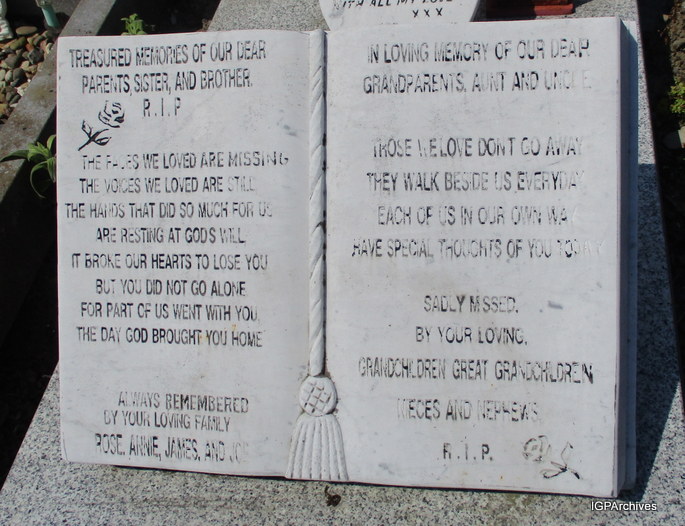 WITH ALL MY LOVE
X X X
TREASURED MEMORIES OF OUR DEAR
PARENTS, SISTER, AND BROTHER.
R.I.P
THE FACES WE LOVED ARE MISSING
THE VOICES WE LOVED ARE STILL
THE HANDS THAT DID SO MUCH FOR US
ARE RESTING AT GODS WILL
IT BROKE OUR HEARTS TO LOSE YOU
BUT YOU DID NOT GO ALONE
FOR PART OF US WENT WITH YOU,
THE DAY GOD BROUGHT YOU HOME
ALWAYS REMEMBERED
BY YOUR LOVING FAMILY
ROSE, ANNIE, JAMES, AND
IN LOVING MEMORY OF OUR DEAR
GRANDPARENTS, AUNT AND UNCLE
THOSE WE LOVE DON'T GO AWAY
THEY WALK BESIDE US EVERYDAY
EACH OF US IN OUR OWN WAY
HAVE SPECIAL THOUGHTS OF YOU TODAY
SADLY MISSED,
BY YOUR LOVING,
GRANDCHILDREN GREAT GRANDCHILDREN
NIECES AND NEPHEWS.
R.I.P.
IGPArchives